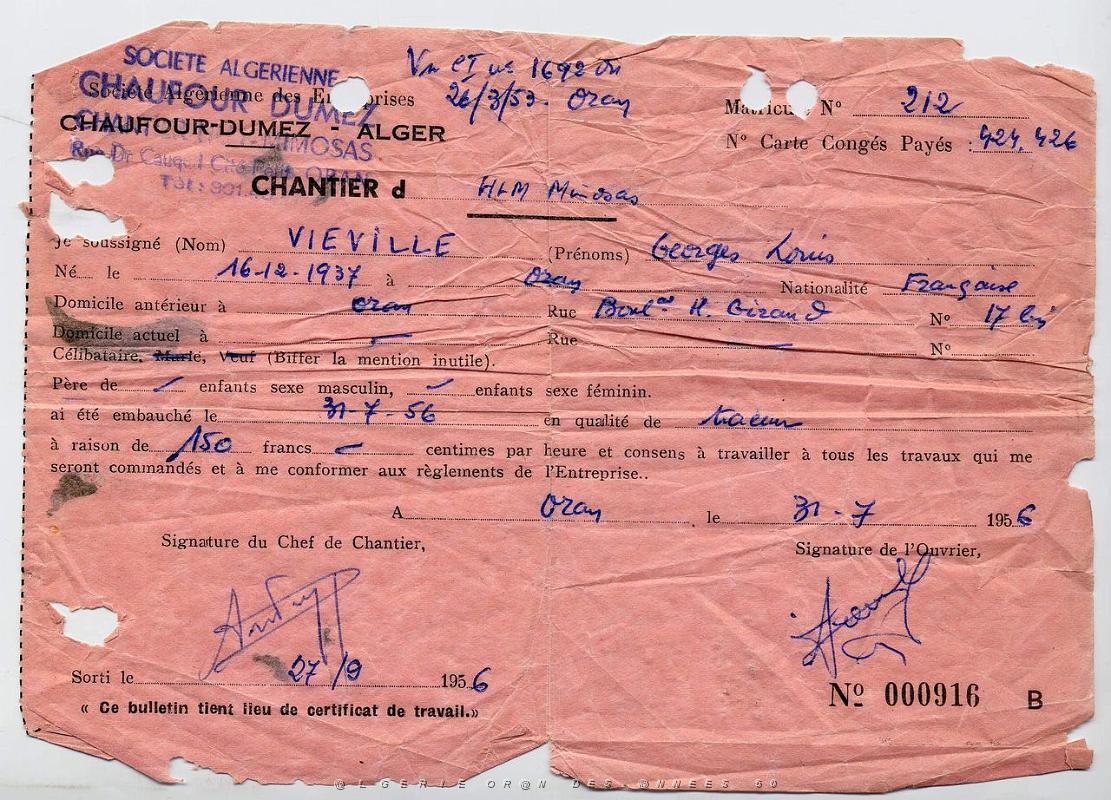 SOCIETE ALGERIENNE
CHAUFOUR DUMEZ
MIMOSAS
Rue Dr Cauq Cité ORAN
Tél : 901
Vu CI nº 1692 du
26/3/53 - Oran
Société Algérienne des Entreprises
CHAUFOUR-DUMEZ - ALGER
Matricule Nº 212
Nº Carte Congés Payés : 424,426
CHANTIER d HLM Mimosas
Je soussigné (Nom) VIEVILLE (Prénoms) Georges Louis
Né le 16-12-1937 à Oran Nationalité Française
Domicile antérieur à Oran Rue Boul H. Giraud Nº 17 bis
Domicile actuel à — Rue — Nº
Célibataire, Marié, Veuf (Biffer la mention inutile).
Père de enfants sexe masculin, enfants sexe féminin.
ai été embauché le 31-7-56 en qualité de traceur
à raison de 150 francs — centimes par heure et consens à travailler à tous les travaux qui me
seront commandés et à me conformer aux règlements de l'Entreprise..
A Oran, le 31-7 1956
Signature du Chef de Chantier, Signature de l'Ouvrier,
Sorti le 27/9 1956
Nº 000916 B
« Ce bulletin tient lieu de certificat de travail.»
@LGERIE OR@N DES @NNEES 50